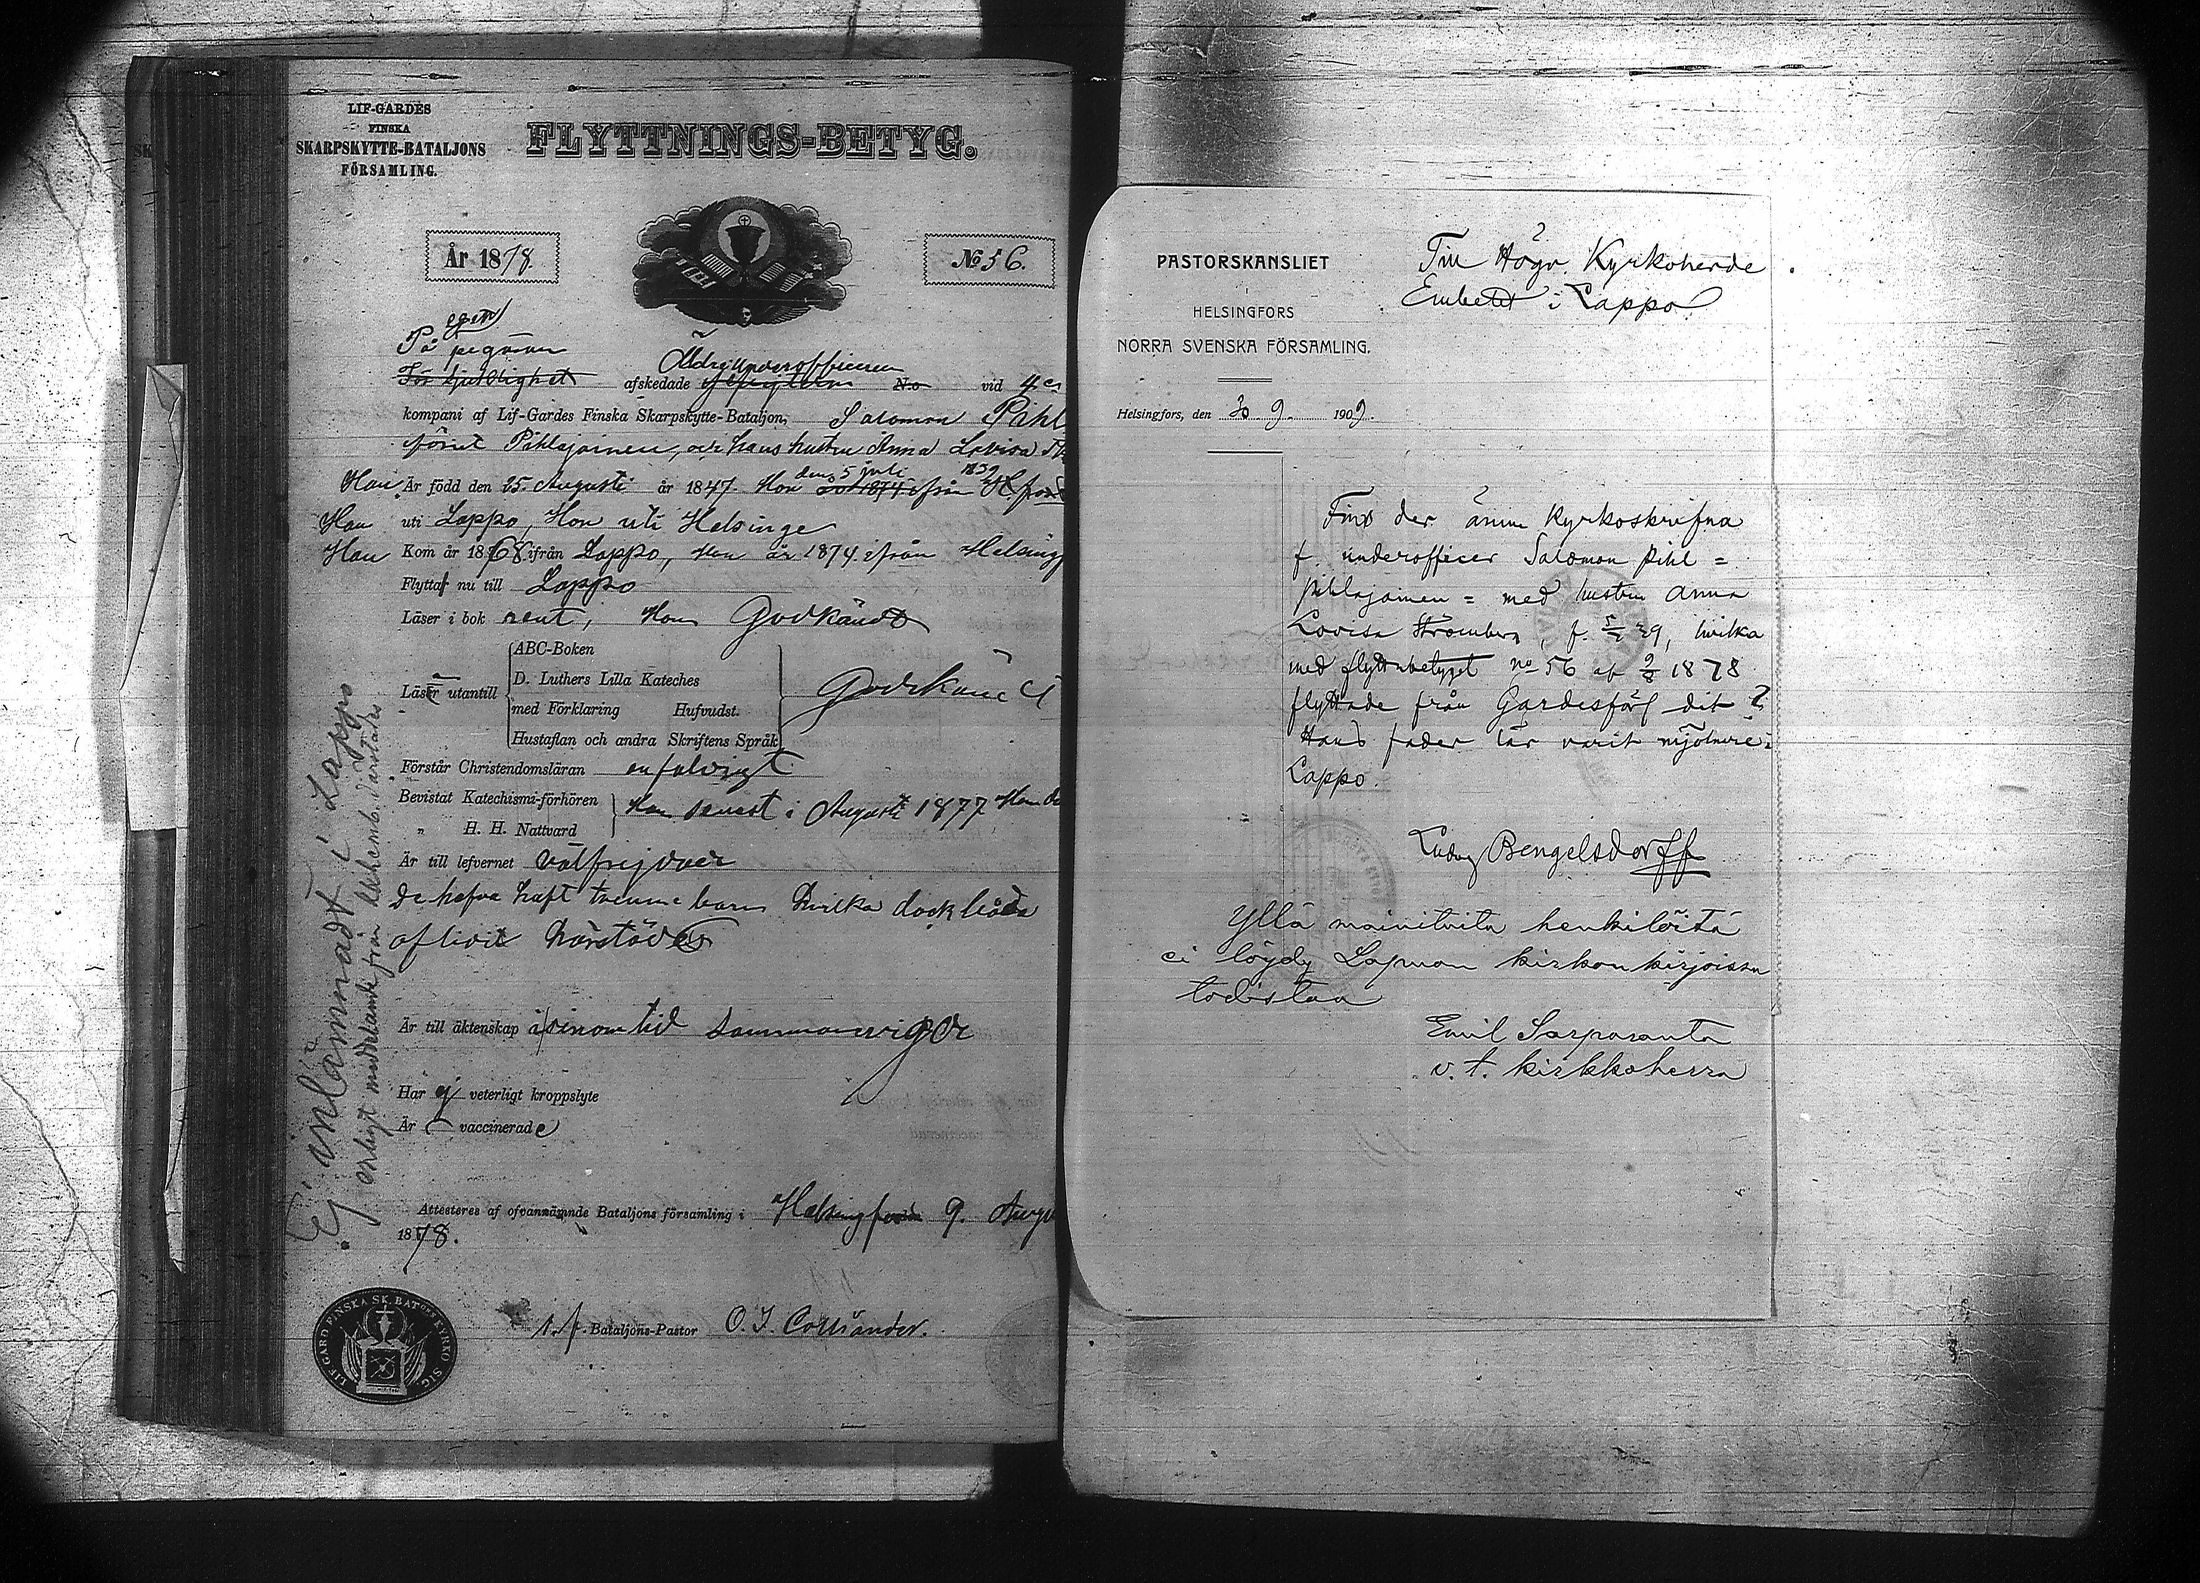 LIF-GARDES
FINSKA
SKARPSKYTTE-BATALJONS
FÖRSAMLING.
FLYTTNINGS-BETYG.
År 1878.
No 56.
egen
På begäran
För tjenstlighet afskedade Äldre Underofficeren No vid 4er
kompani af Lif-Gardes Finska Skarpskytte-Bataljon, Salomon Pihl
förut Pihlajainen, och hans hustru Anna Lovisa
Han Är född den 25. Augusti år 1847. Hon den 5 juli 1839
Han uti Lappo, Hon uti Helsinge
Han Kom år 1868 ifrån Lappo, Hon år 1874 ifrån Helsingf
Flyttar nu till Lappo
Läser i bok rent, Hon Godkändt
ABC-Boken
Läser utantill D. Luthers Lilla Kateches
med Förklaring Hufvudst.
Hustaflan och andra Skriftens Språk
Godkändt
Förstår Christendomsläran enfaldigt
Bevistat Katechismi-förhören
„ H. H. Nattvard
Han senast i Augusti 1877 Hon
Är till lefvernet välfrejdade
De hafva haft tvenne barn hvilka dock båda
aflidit härstädes
Är till äktenskap sinom tid sammanvigde
Har ej veterligt kroppslyte
Är vaccinerade
Attesteres af ofvannämnde Bataljons församling i Helsingfors 9. Augu
1878.
t. f. Bataljons-Pastor O. I. Colliander.
LIF GARD FINSKA SK. BATons KYRKO SIG.
Ej inlämnadt i Lappo
enligt meddelande från därstädes
PASTORSKANSLIET
I
HELSINGFORS
NORRA SVENSKA FÖRSAMLING.
Helsingfors, den 30 9. 1909.
Till Högv. Kyrkoherde
Embetet i Lappo.
Fins der ännu kyrkoskrifna
f. underofficer Salomon Pihl =
Pihlajainen = med hustru Anna
Lovisa Strömberg, f. 39, hvilka
med flyttnbetyget no 56 af 9/8 1878
flyttade från Gardesförs dit?
Hans fader lär varit mjölnare i
Lappo.
Ludvig Bengelsdorff
Yllä mainituita henkilöitä
ei löydy Lapuan kirkonkirjoissa
todistaa
Emil Sarparanta
v. t. kirkkoherra